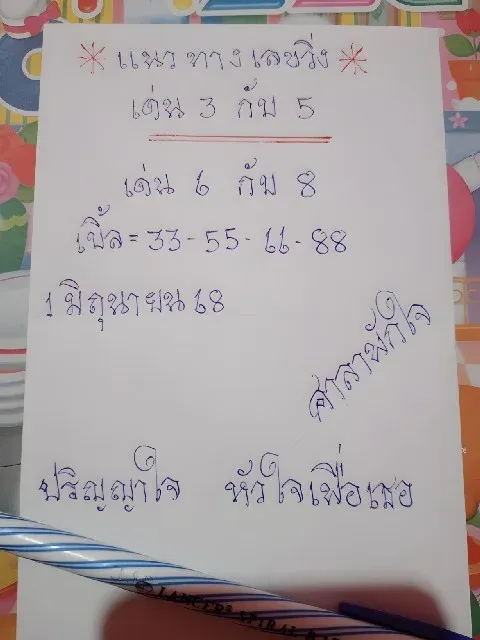 * แนวทางเลขวิ่ง *
เด่น 3 กับ 5
เด่น 6 กับ 8
เบิ้ล = 33 - 55 - 66 - 88
1 มิถุนายน 68
ศาลาพักใจ
ปริญญาใจ หัวใจเพื่อเธอ
LANCER SPIRAL